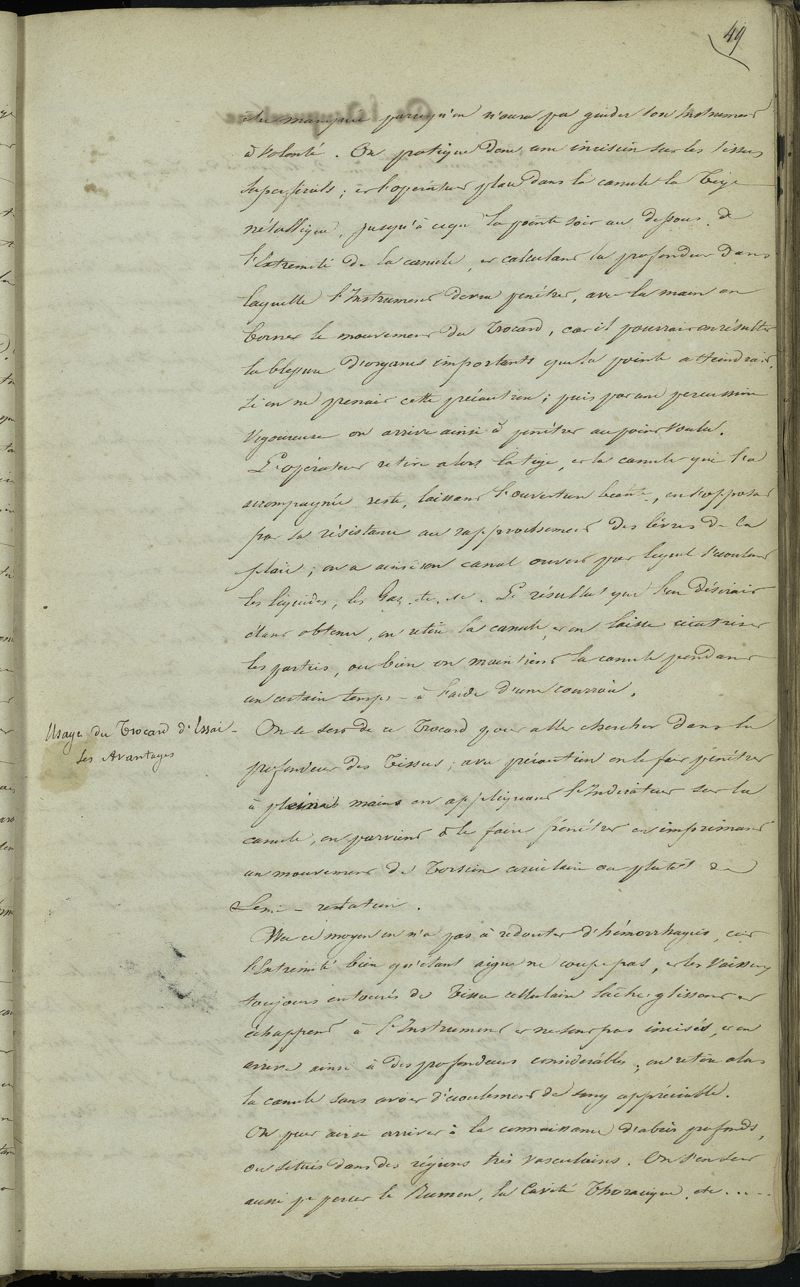 49
être manqué parcequ'on n'aura pu guider son Instrument
à volonté. On pratique donc une incision sur les tissus
superficiels; et l'opérateur place dans la canule la Tige
métallique, jusqu'à ceque la pointe soit au dessous de
l'Extremité de la canule, et calculant la profondeur dans
laquelle l'Instrument devra pénétrer, avec la main on
borne le mouvement du Trocard, car il pourrait en résulter
la blessure d'organes importants que la pointe atteindrait,
si on ne prenait cette précaution; puis par une percussion
vigoureuse on arrive ainsi à pénétrer au point voulu.
L'opérateur retire alors la tige, et la canule qui l'a
accompagnée reste, laissant l'ouverture béante, en s'opposant
par sa résistance au rapprochement des lèvres de la
plaie; on a ainsi un canal ouvert par lequel s'écoulent
les liquides, les Gaz, etc. etc. Le résultat que l'on désirait
étant obtenu, on retire la canule et on laisse cicatriser
les parties, ou bien on maintient la canule pendant
un certain temps à l'aide d'une courroie.
Usage du Trocard d'Essai -
ses Avantages
On se sert de ce Trocard pour aller chercher dans la
profondeur des Tissus; avec précaution on le fait pénétrer
à pleines mains en appliquant l'Indicateur sur la
canule, on parvient à le faire pénétrer en imprimant
un mouvement de Torsion circulaire ou plutôt de
Semi-rotation.
Par ce moyen on n'a pas à redouter d'hémorrhagies, car
l'Extremité bien qu'étant aigue ne coupe pas, et les Vaisseaux
toujours entourés de Tissu cellulaire lâche, glissent et
échappent à l'Instrument et ne sont pas incisés, et on
arrive ainsi à des profondeurs considérables, on retire alors
la canule sans avoir d'écoulement de sang appréciable.
On peut ainsi arriver à la connaissance d'abcès profonds,
ou situés dans des régions très vasculaires. On s'en sert
aussi pr percer le Rumen, la Cavité Thoracique, etc.....